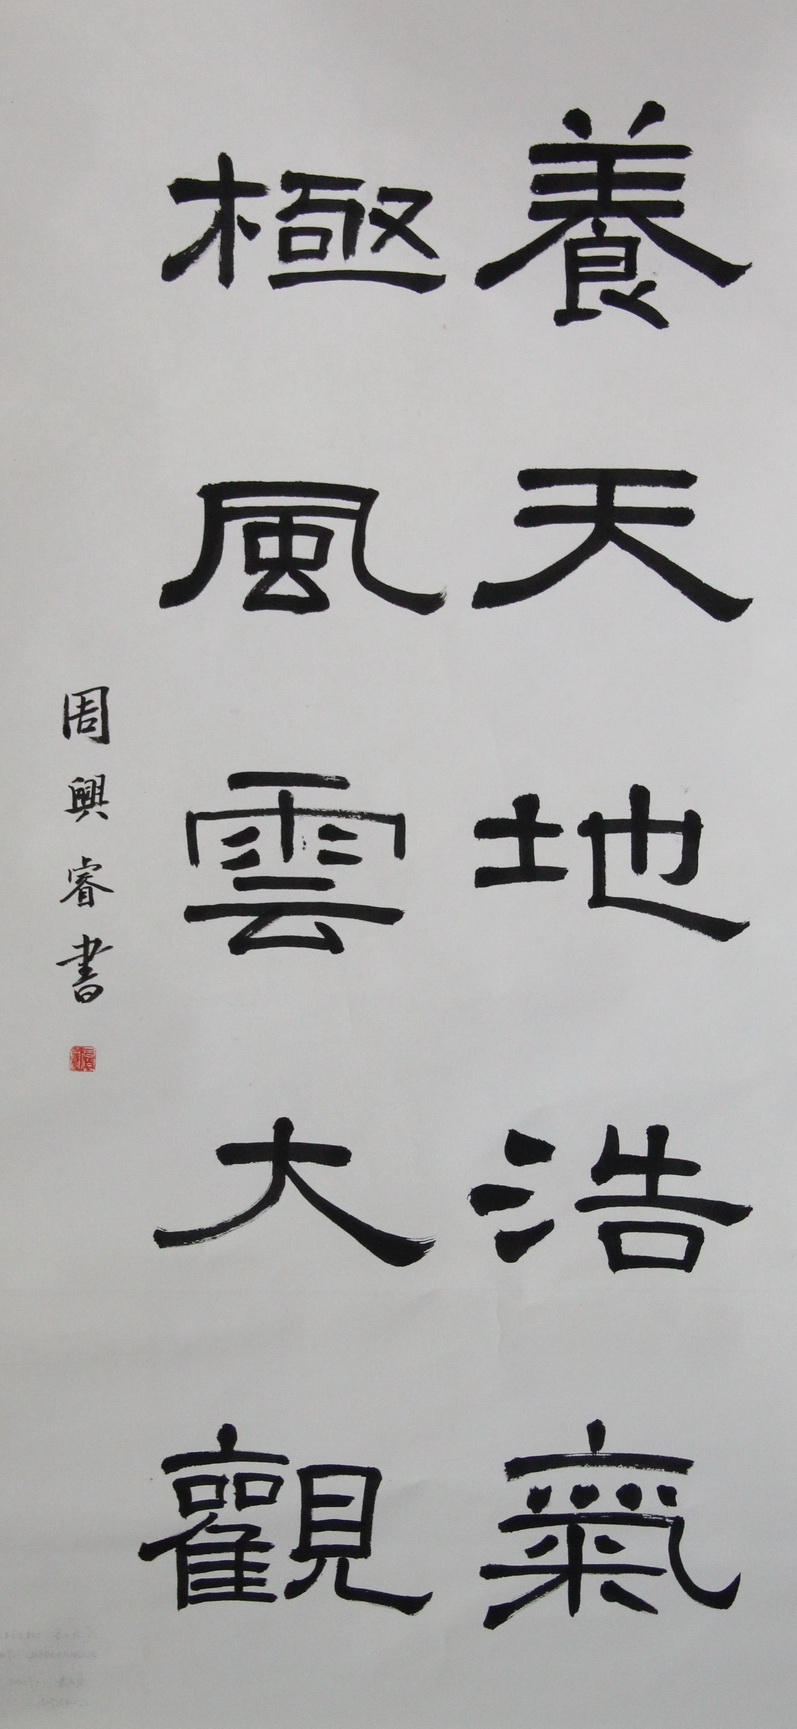 養天地浩氣
極風雲大觀
周興睿書